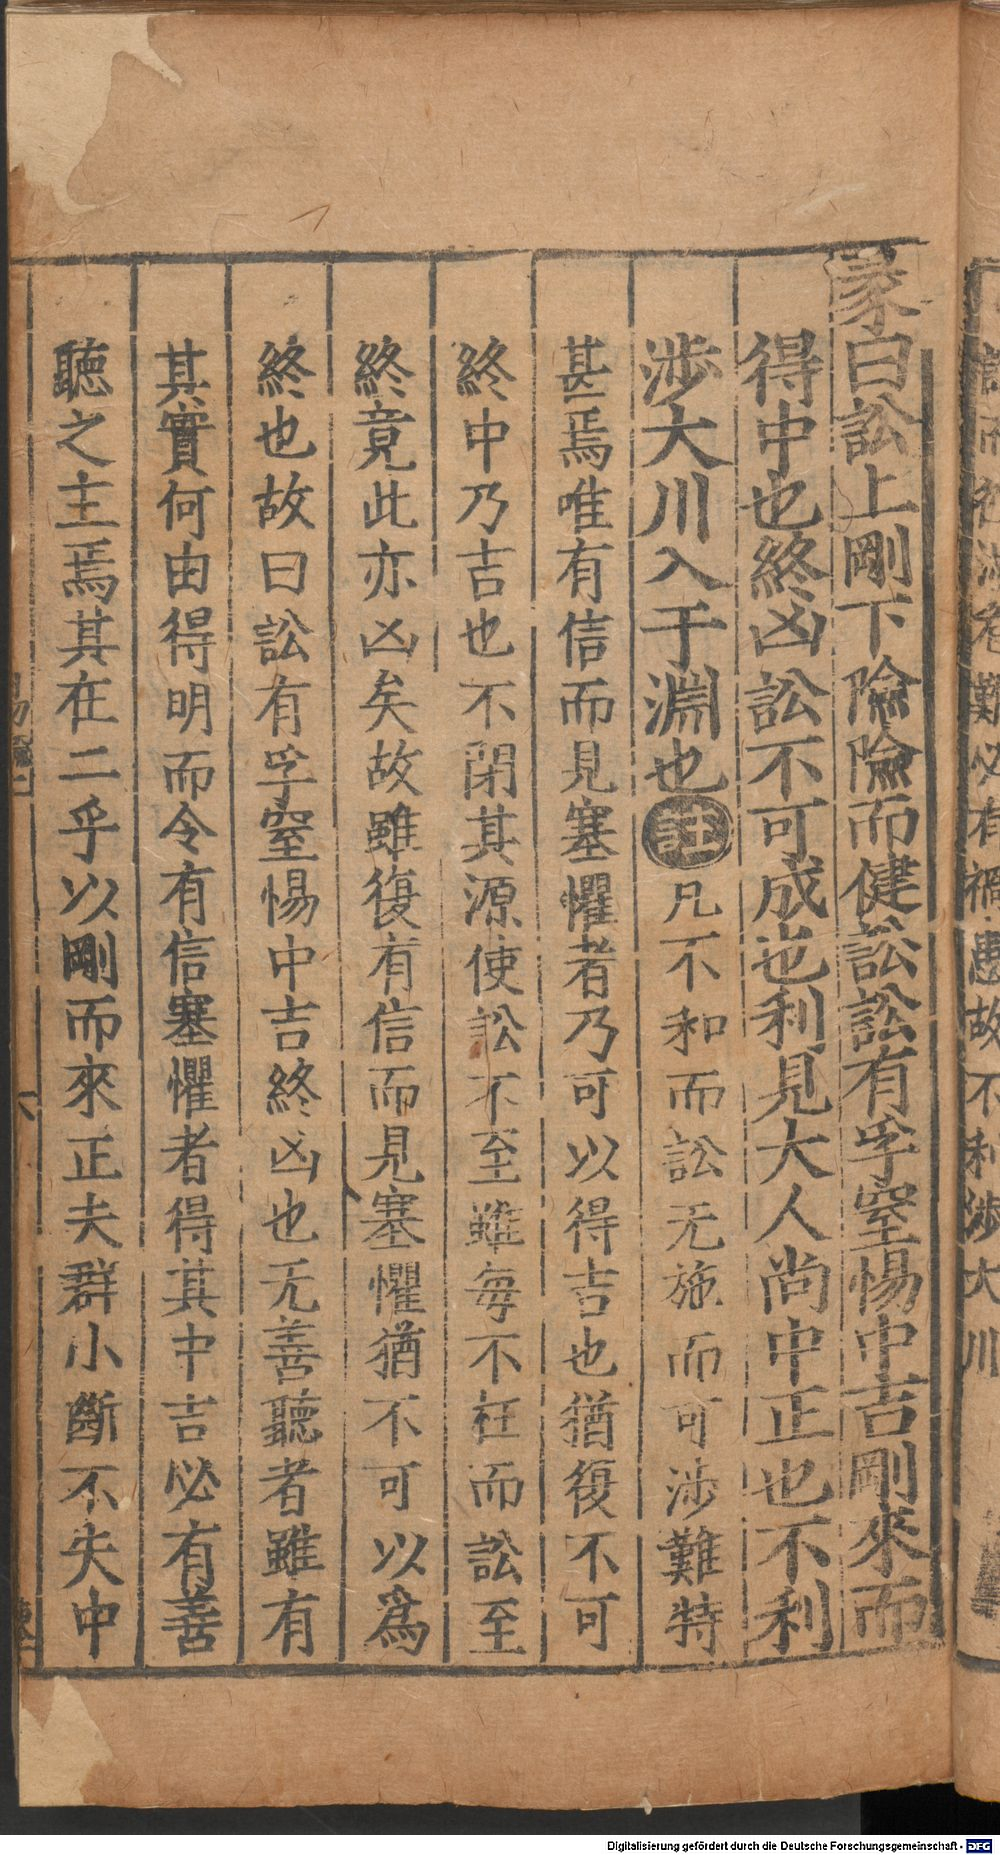 訟而往涉危難必有禍患故不利涉大川
彖曰訟上剛下險險而健訟訟有孚窒惕中吉剛來而
得中也終凶訟不可成也利見大人尚中正也不利
涉大川入于淵也註凡不和而訟无施而可涉難特
甚焉唯有信而見塞懼者乃可以得吉也猶復不可
終中乃吉也不閉其源使訟不至雖每不枉而訟至
終竟此亦凶矣故雖復有信而見塞懼猶不可以爲
終也故曰訟有孚窒惕中吉終凶也无善聽者雖有
其實何由得明而令有信塞懼者得其中吉必有善
聽之主焉其在二乎以剛而來正夫群小斷不失中
六
Digitalisierung gefördert durch die Deutsche Forschungsgemeinschaft - DFG